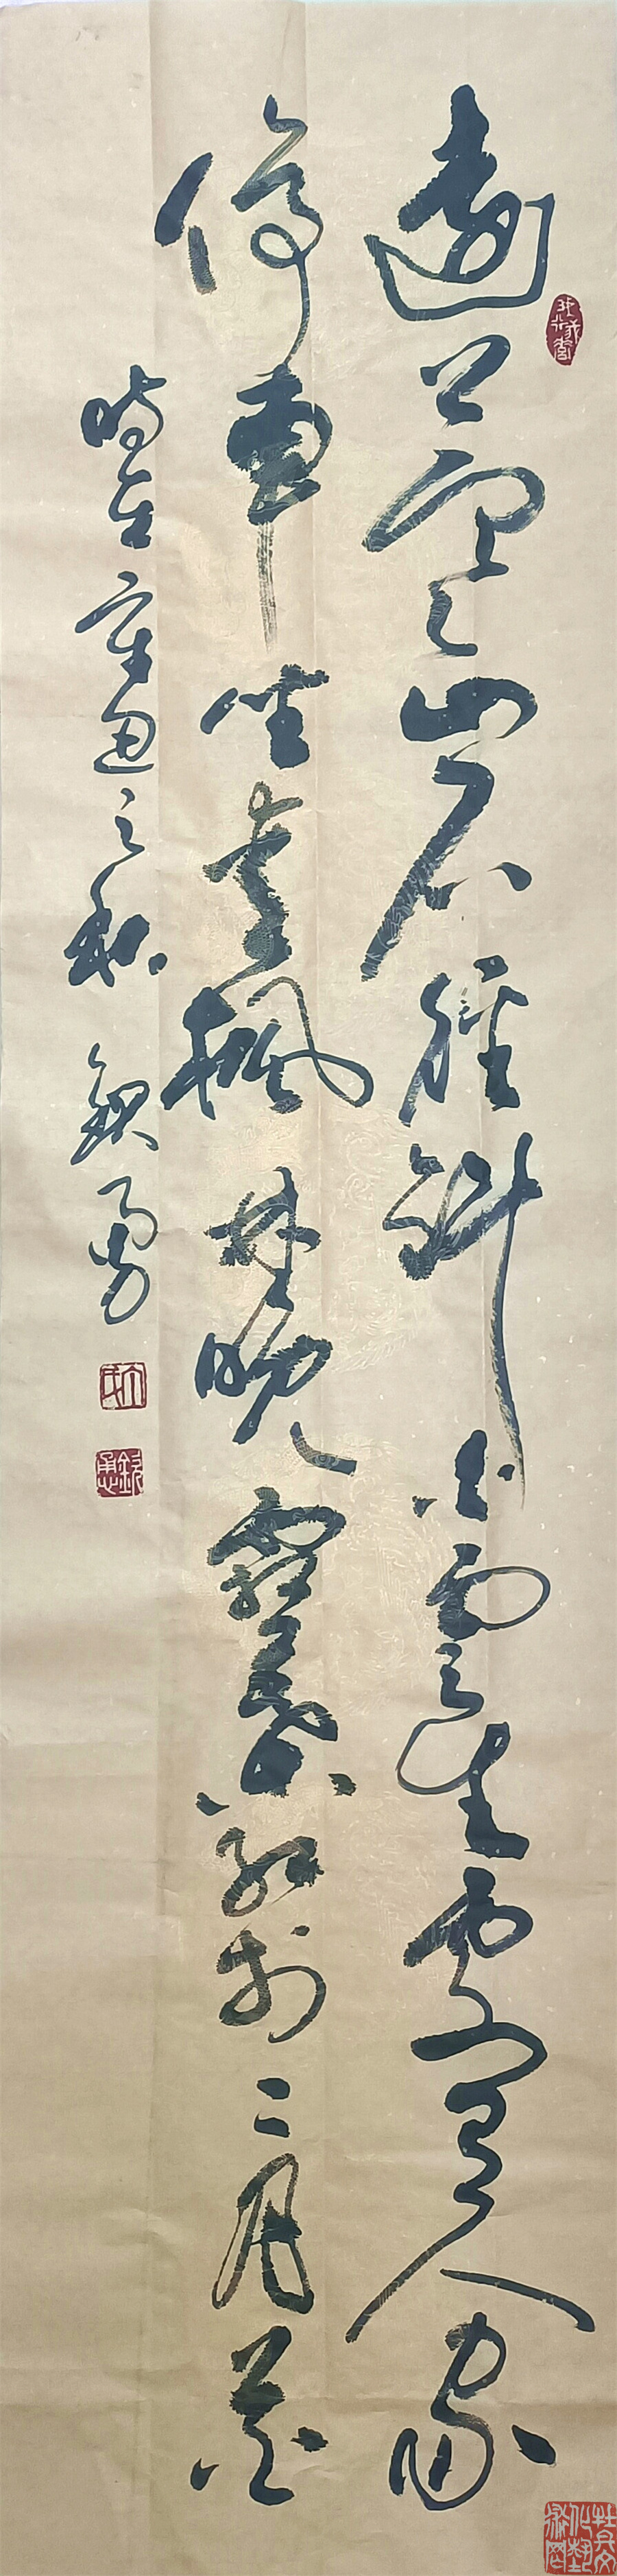 遠上寒山石徑斜白雲生處有人家
停車坐愛楓林晚霜葉紅於二月花
時在之秋 欽勇